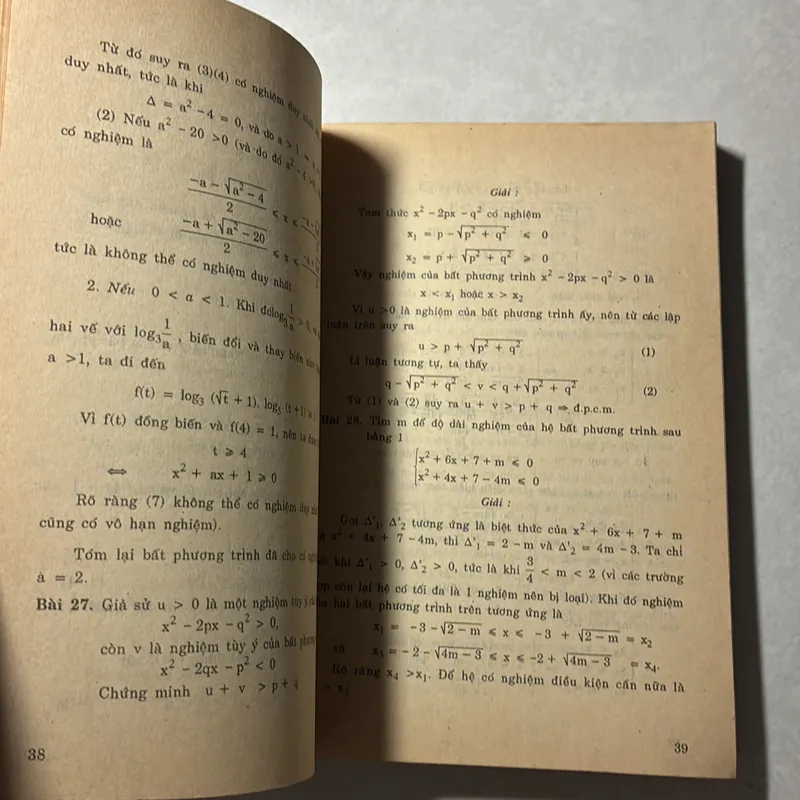 Từ đó suy ra (3)(4) có nghiệm duy nhất
duy nhất, tức là khi
Δ = a² − 4 = 0, và do a > 1
(2) Nếu a² − 20 > 0 (và do đó a² − 4 >
có nghiệm là
(−a − √(a² − 4))/2 ⩽ x ⩽
hoặc (−a + √(a² − 20))/2 ⩽ x ⩽
tức là không thể có nghiệm duy nhất
2. Nếu 0 < a < 1. Khi đó log₃ 1/a > 0,
hai vế với log₃ 1/a, biến đổi và thay biến
a > 1, ta đi đến
f(t) = log₃ (√t + 1). log₅ (t + 1) ⩾
Vì f(t) đồng biến và f(4) = 1, nên ta
t ⩾ 4
⟺ x² + ax + 1 ⩾ 0
Rõ ràng (7) không thể có nghiệm duy
cũng có vô hạn nghiệm).
Tóm lại bất phương trình đã cho có
a = 2.
Bài 27. Giả sử u > 0 là một nghiệm tùy ý
x² − 2px − q² > 0,
còn v là nghiệm tùy ý của bất phương
x² − 2qx − p² < 0
Chứng minh u + v > p + q
38
Giải :
Tam thức x² − 2px − q² có nghiệm
x₁ = p − √(p² + q²) ⩽ 0
x₂ = p + √(p² + q²) ⩾ 0
Vậy nghiệm của bất phương trình x² − 2px − q² > 0 là
x < x₁ hoặc x > x₂
Vì u > 0 là nghiệm của bất phương trình ấy, nên từ các lập
luận trên suy ra
u > p + √(p² + q²) (1)
Lí luận tương tự, ta thấy
q − √(p² + q²) < v < q + √(p² + q²) (2)
Từ (1) và (2) suy ra u + v > p + q ⇒ đ.p.c.m.
Bài 28. Tìm m để độ dài nghiệm của hệ bất phương trình sau
bằng 1
x² + 6x + 7 + m ⩽ 0
x² + 4x + 7 − 4m ⩽ 0
Giải :
Gọi Δ'₁, Δ'₂ tương ứng là biệt thức của x² + 6x + 7 + m
x² + 4x + 7 − 4m, thì Δ'₁ = 2 − m và Δ'₂ = 4m − 3. Ta chỉ
khi Δ'₁ > 0, Δ'₂ > 0, tức là khi 3/4 < m < 2 (vì các trường
còn lại hệ có tối đa là 1 nghiệm nên bị loại). Khi đó nghiệm
hai bất phương trình trên tương ứng là
x₁ = −3 − √(2 − m) ⩽ x ⩽ −3 + √(2 − m) = x₂
và x₃ = −2 − √(4m − 3) ⩽ x ⩽ −2 + √(4m − 3) = x₄.
Rõ ràng x₄ > x₁. Để hệ có nghiệm điều kiện cần nữa là
39